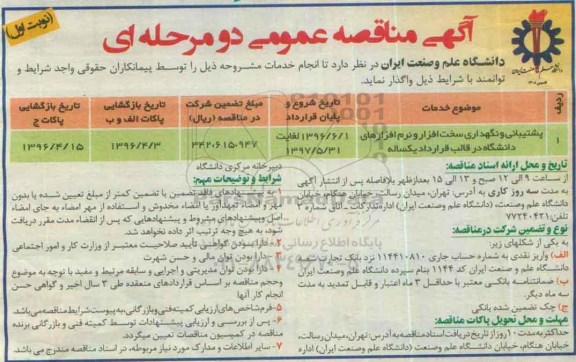 (نوبت اول)
آگهی مناقصه عمومی دو مرحله ای
دانشگاه علم وصنعت ایران در نظر دارد تا انجام خدمات مشروحه ذیل را توسط پیمانکاران حقوقی واجد شرایط و
توانمند با شرایط ذیل واگذار نماید.
ردیف
موضوع خدمات
تاریخ شروع و پایان قرارداد
مبلغ تضمین شرکت در مناقصه (ریال)
تاریخ بازگشایی پاکات الف و ب
تاریخ بازگشایی پاکات ج
۱
پشتیبانی و نگهداری سخت افزار و نرم افزارهای دانشگاه در قالب قرارداد یکساله
۱۳۹۶/۶/۱ لغایت ۱۳۹۷/۵/۳۱
۳۴۲۰۶۱۵۰۹۴۷
۱۳۹۶/۴/۳
۱۳۹۶/۴/۱۵
تاریخ و محل ارائه اسناد مناقصه:
از ساعت ۹ الی ۱۲ صبح و ۱۳ الی ۱۵ بعدازظهر بلافاصله پس از انتشار آگهی
به مدت سه روز کاری به آدرس: تهران، میدان رسالت، خیابان هنگام، خیابان
دانشگاه علم و صنعت، (دانشگاه علم و صنعت ایران) اداره تدارکات
تلفن: ۷۷۲۴۰۴۲۱
نوع و تضمین شرکت درمناقصه:
به یکی از شکلهای زیر:
الف) واریز نقدی به شماره حساب جاری ۱۱۴۴۱۰۸۱۰ نزد بانک تجارت شعبه
دانشگاه علم و صنعت ایران کد ۱۱۴۴ بنام سپرده دانشگاه علم و صنعت ایران
ب) ضمانتنامه بانکی معتبر با حداقل ۳ ماه اعتبار و قابل تمدید به مدت
سه ماه دیگر.
ج) چک تضمین شده بانکی
مهلت و محل تحویل پاکات مناقصه:
حداکثر به مدت ۱۰ روز از تاریخ دریافت اسناد مناقصه به آدرس: تهران، میدان رسالت،
خیابان هنگام، خیابان دانشگاه علم و صنعت (دانشگاه علم و صنعت ایران) اداره
دبیرخانه مرکزی دانشگاه
شرایط و توضیحات مهم:
۱- به پیشنهادهای فاقد تضمین یا تضمین کمتر از مبلغ تعیین شده یا بدون
مهر و امضاء تعهدآور یا امضاء مخدوش و استفاده از مهر امضاء به جای امضاء
اصل و پیشنهادهای مشروط و پیشنهادهایی که پس از انقضاء مدت مقرر دریافت
شود، به هیچ وجه ترتیب اثر داده نخواهد شد.
۲- دارا بودن گواهی تأیید صلاحیت معتبر از وزارت کار و امور اجتماعی
۳- دارا بودن توان مالی و حسن شهرت
۴- دارا بودن توان مدیریتی و اجرایی و سابقه مرتبط و مفید با توجه به موضوع
وحجم مناقصه بر اساس قراردادهای منعقده طی ۳ سال اخیر و گواهی حسن
انجام کار آنها
۵- فرم شاخص های ارزیابی کمیته فنی و بازرگانی، به پیوست شرایط مناقصه می باشد.
۶- پس از بررسی و ارزیابی پیشنهادات توسط کمیته فنی و بازرگانی برنده
مناقصه در کمیسیون مناقصات تعیین میگردد.
۷- سایر اطلاعات و مدارک مورد نیاز مربوطه، در اسناد مناقصه مندرج می باشد.